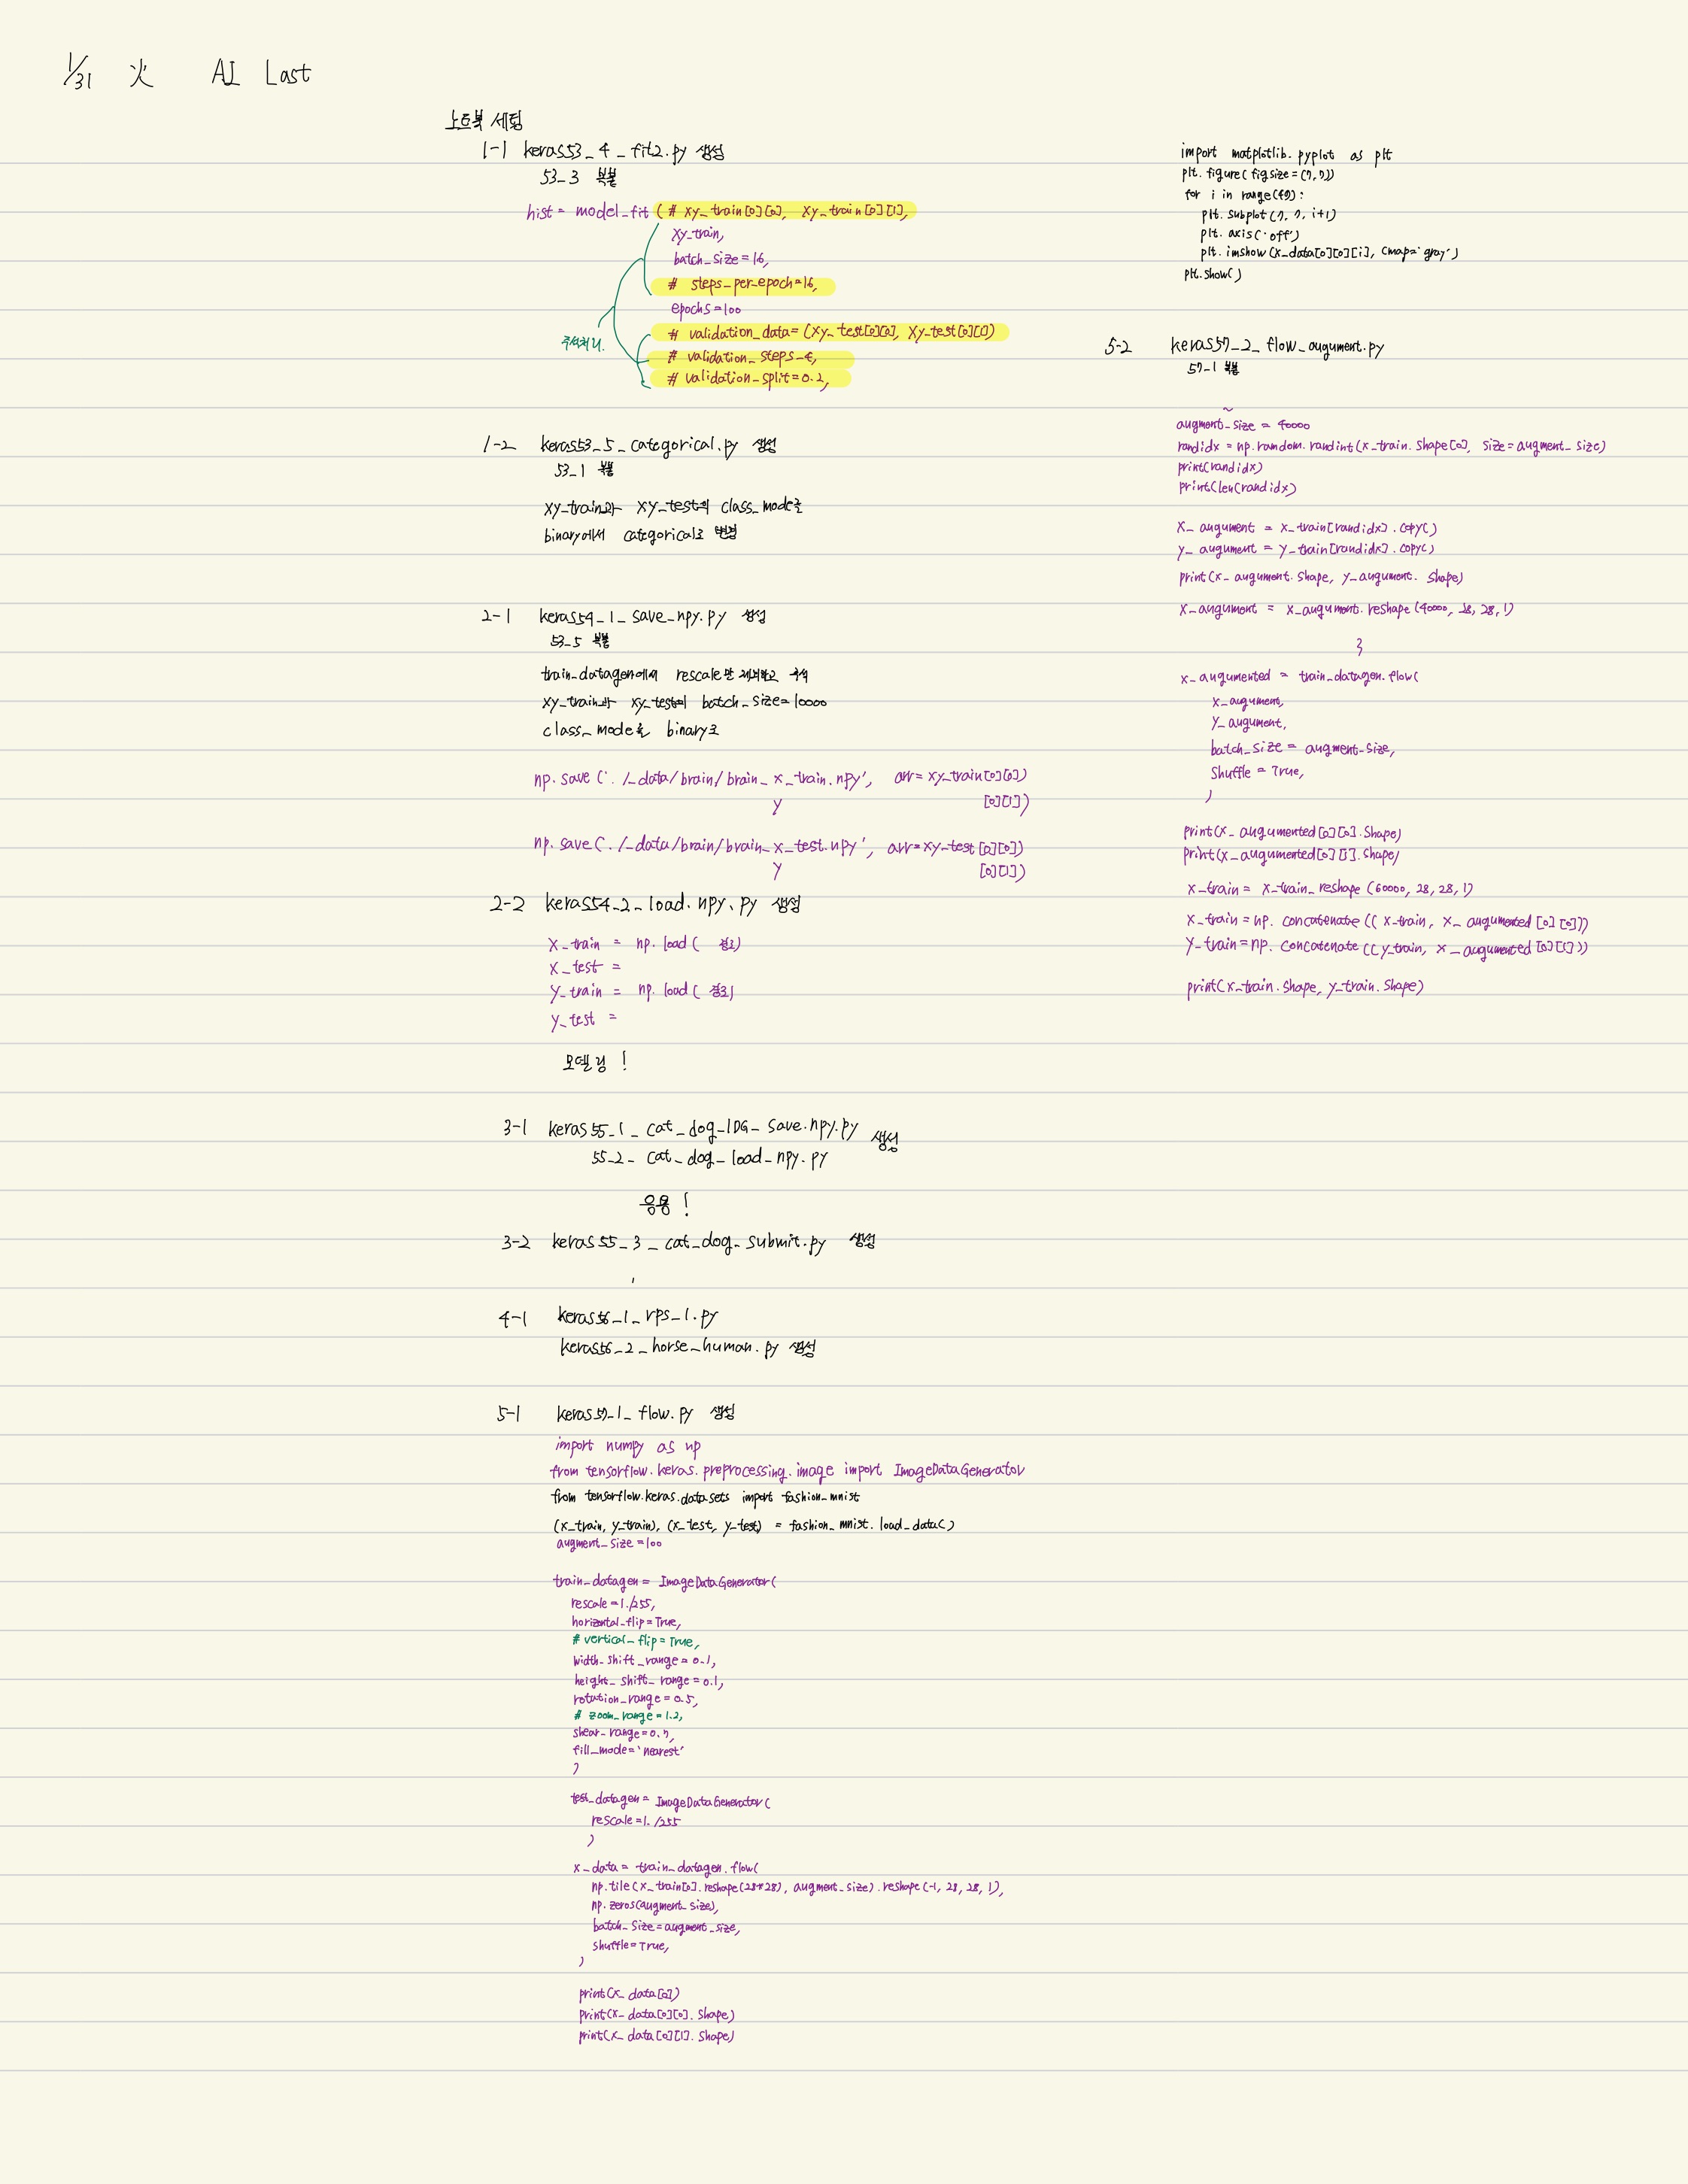 1/31 火 AI Last
노트북 세팅
1-1 keras53_4_fit2.py 생성
53_3 복붙
hist = model_fit ( # xy_train[0][0], xy_train[0][1],
xy_train,
batch_size=16,
# steps_per_epoch=16,
epochs=100
# validation_data=(xy_test[0][0], xy_test[0][1])
주석처리.
# validation_steps_4,
# validation_split=0.2,
1-2 keras53_5_categorical.py 생성
53_1 복붙
xy_train과 xy_test의 class_mode를
binary에서 categorical로 변경
2-1 keras54_1_save_npy.py 생성
53_5 복붙
train_datagen에서 rescale만 제외하고 주석
xy_train과 xy_test의 batch_size=10000
class_mode를 binary로
np.save ('./_data/brain/brain_x_train.npy', arr=xy_train[0][0])
y [0][1])
np.save ('./_data/brain/brain_x_test.npy', arr=xy_test[0][0])
y [0][1])
2-2 keras54_2_load.npy.py 생성
x_train = np.load( 경로)
x_test =
y_train = np.load( 경로)
y_test =
모델링 !
3-1 keras55_1_cat_dog_IDG_save.npy.py 생성
55_2_cat_dog_load_npy.py
응용 !
3-2 keras55_3_cat_dog_submit.py 생성
4-1 keras56_1_rps_1.py
keras56_2_horse_human.py 생성
5-1 keras57_1_flow.py 생성
import numpy as np
from tensorflow.keras.preprocessing.image import ImageDataGenerator
from tensorflow.keras.datasets import fashion_mnist
(x_train, y_train), (x_test, y_test) = fashion_mnist.load_data()
augment_size=100
train_datagen = ImageDataGenerator(
rescale=1./255,
horizontal_flip=True,
# vertical_flip=True,
width_shift_range=0.1,
height_shift_range=0.1,
rotation_range=0.5,
# zoom_range=1.2,
shear_range=0.7,
fill_mode='nearest'
)
test_datagen = ImageDataGenerator(
rescale=1./255
)
x_data = train_datagen.flow(
np.tile(x_train[0].reshape(28*28), augment_size).reshape(-1, 28, 28, 1),
np.zeros(augment_size),
batch_size=augment_size,
shuffle=True,
)
print(x_data[0])
print(x_data[0][0].shape)
print(x_data[0][1].shape)
import matplotlib.pyplot as plt
plt.figure(figsize=(7,7))
for i in range(49):
plt.subplot(7, 7, i+1)
plt.axis('off')
plt.imshow(x_data[0][0][i], cmap='gray')
plt.show()
5-2 keras57_2_flow_augument.py
57-1 복붙
~
augment_size = 40000
randidx = np.random.randint(x_train.shape[0], size=augment_size)
print(randidx)
print(len(randidx)
x_augument = x_train[randidx].copy()
y_augument = y_train[randidx].copy()
print(x_augument.shape, y_augument.shape)
x_augument = x_augument.reshape(40000, 28, 28, 1)
x_augumented = train_datagen.flow(
x_augument,
y_augument,
batch_size = augment_size,
shuffle = True,
)
print(x_augumented[0][0].shape)
print(x_augumented[0][1].shape)
x_train = x_train_reshape (60000, 28, 28, 1)
x_train = np.concatenate(( x_train, x_augumented[0][0]))
y_train = np.concatenate((y_train, x_augumented[0][1]))
print(x_train.shape, y_train.shape)